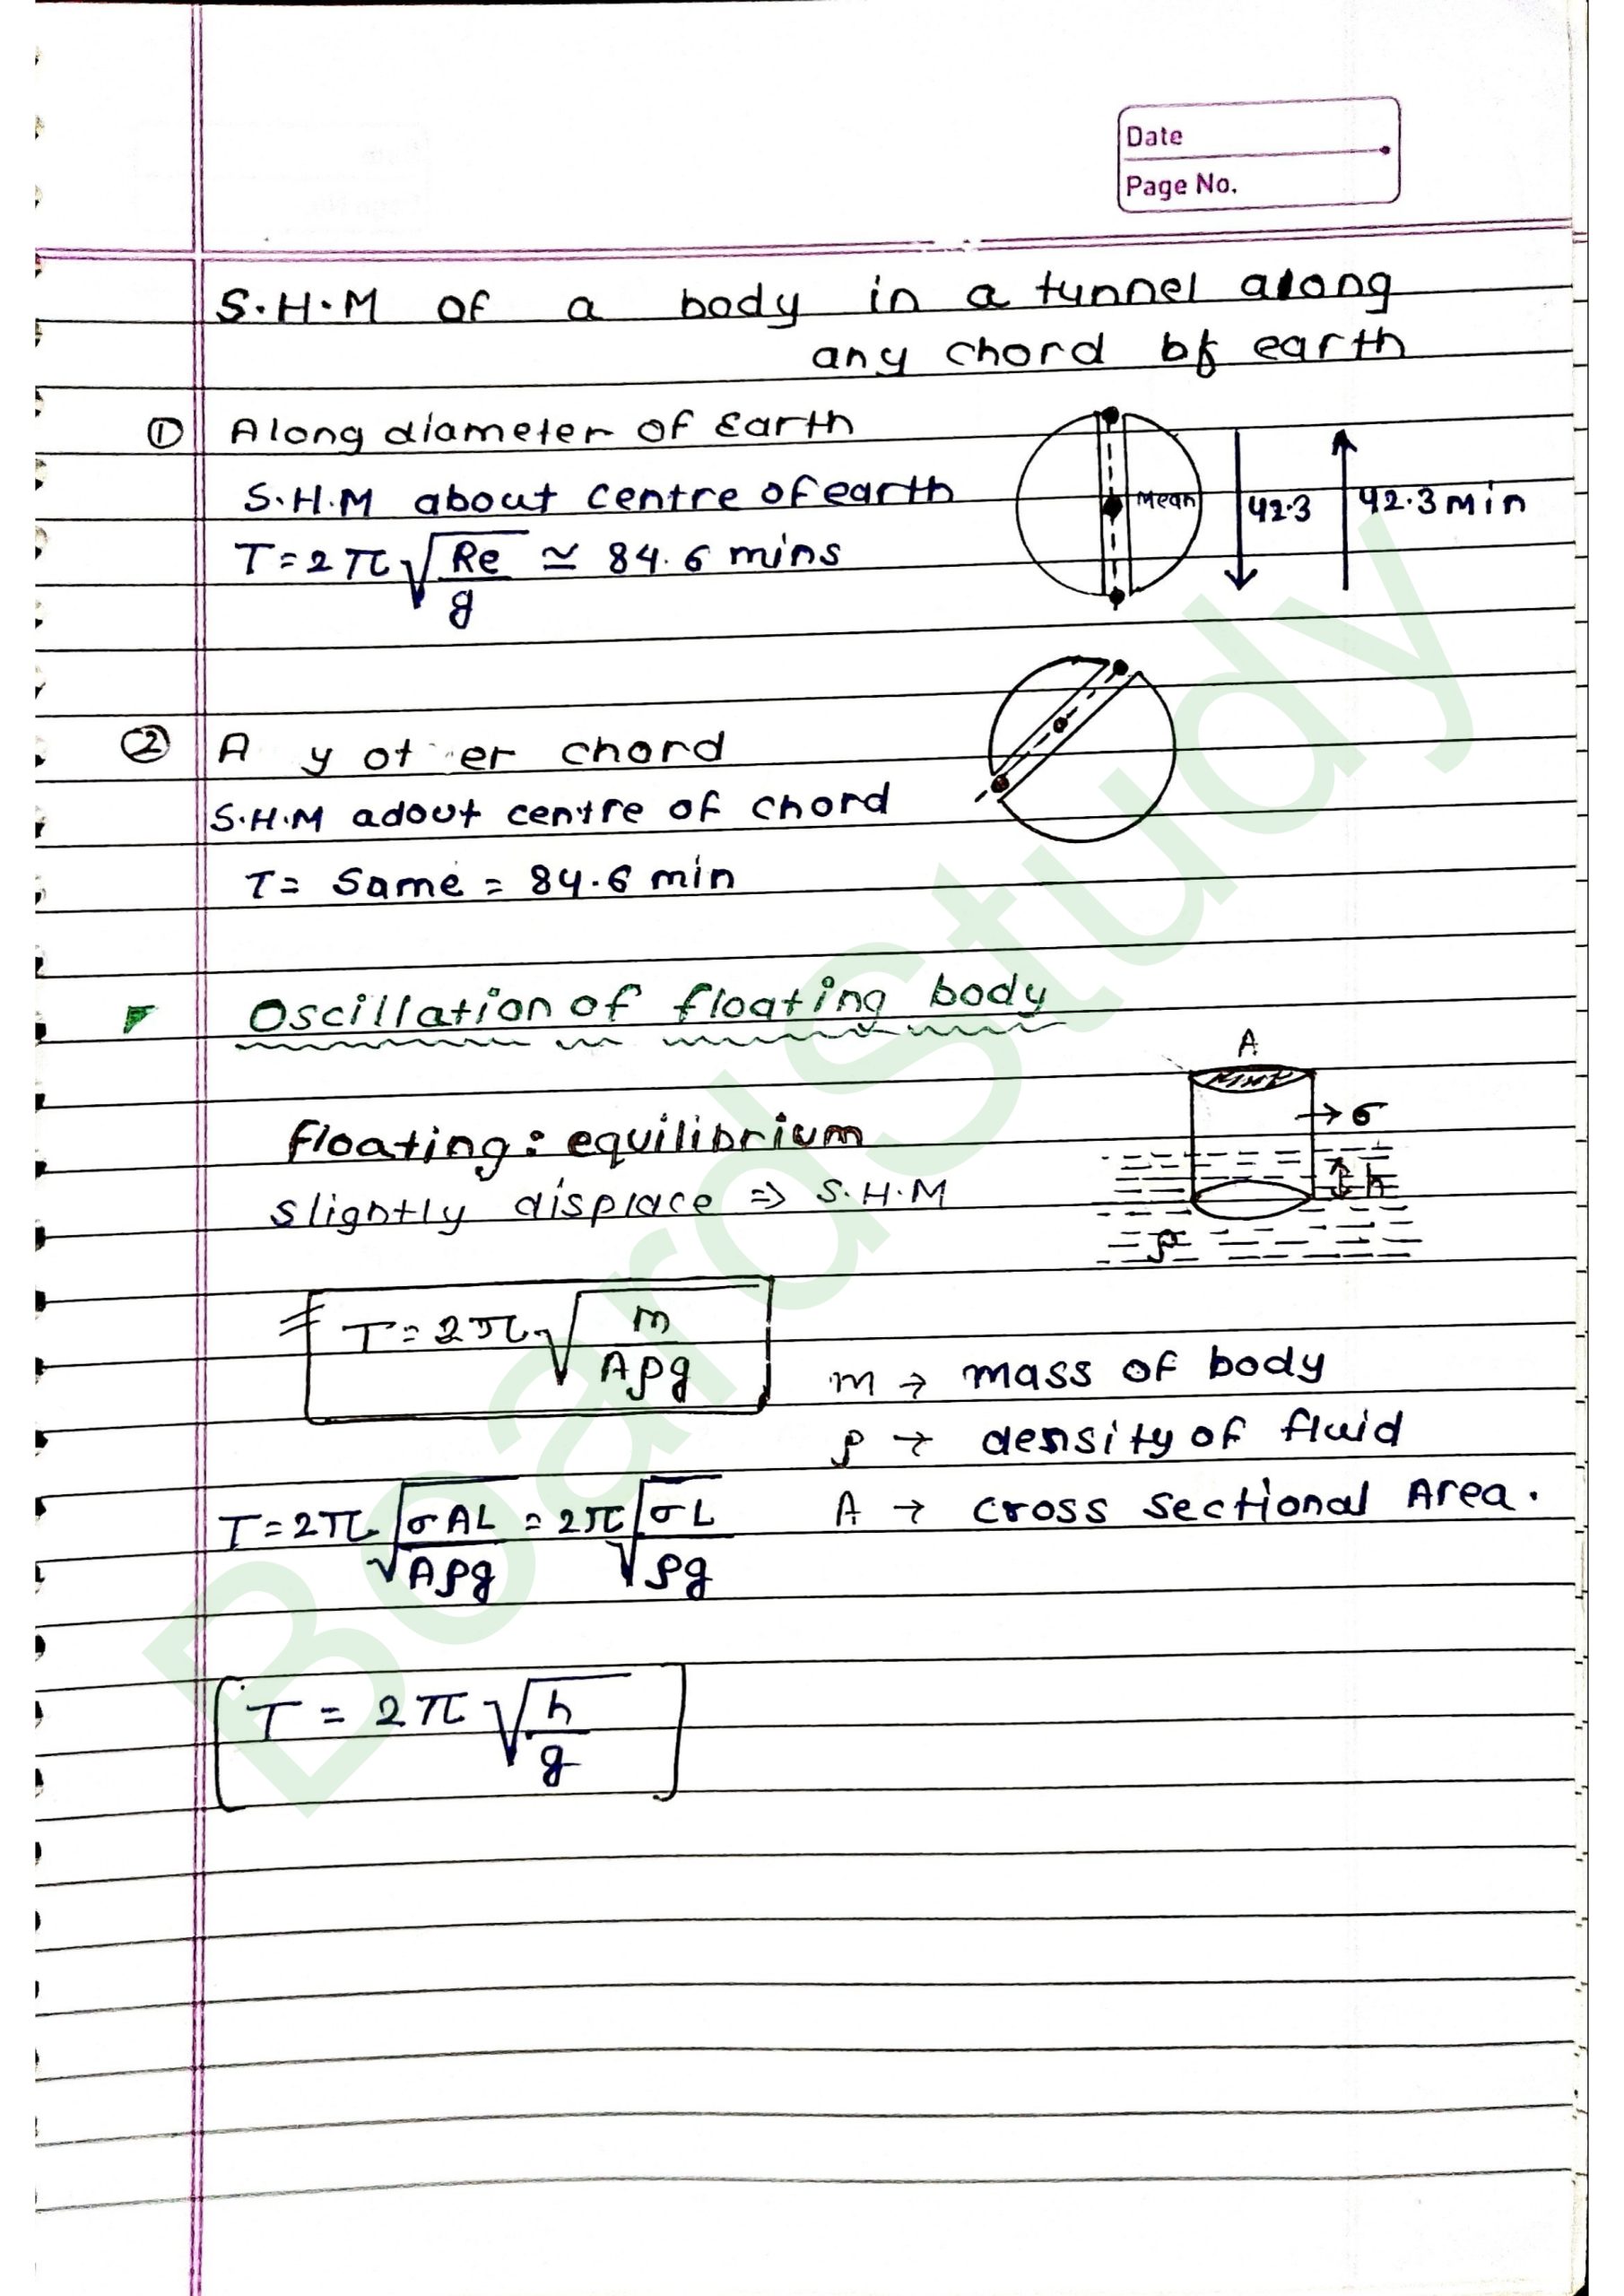 Date
Page No.
S.H.M of a body in a tunnel along
any chord of earth
① Along diameter of Earth
S.H.M about centre of earth
T=2π√(Re/g) ≃ 84.6 mins
Mean
42.3
42.3 min
② A y ot er chord
S.H.M adout centre of chord
T= Same = 84.6 min
Oscillation of floating body
A
floating: equilibrium
→ σ
slightly displace ⇒ S.H.M
h
ρ
T=2π√(m/Aρg)
m → mass of body
ρ → density of fluid
A → cross sectional Area.
T=2π√(σAL/Aρg) = 2π√(σL/ρg)
T = 2π√(h/g)
BoardStudy